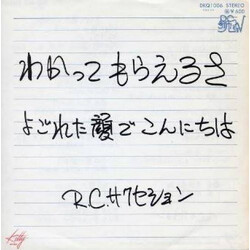 DKQ1006 STEREO
¥600
わかってもらえるさ
よごれた顔でこんにちは
RCサクセション
Kitty